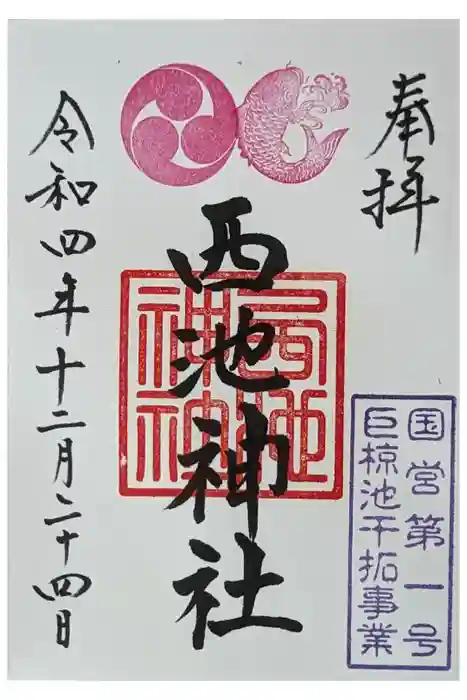 奉拝
国営第一号
巨椋池干拓事業
西池神社
西池神社
令和四年十二月二十四日